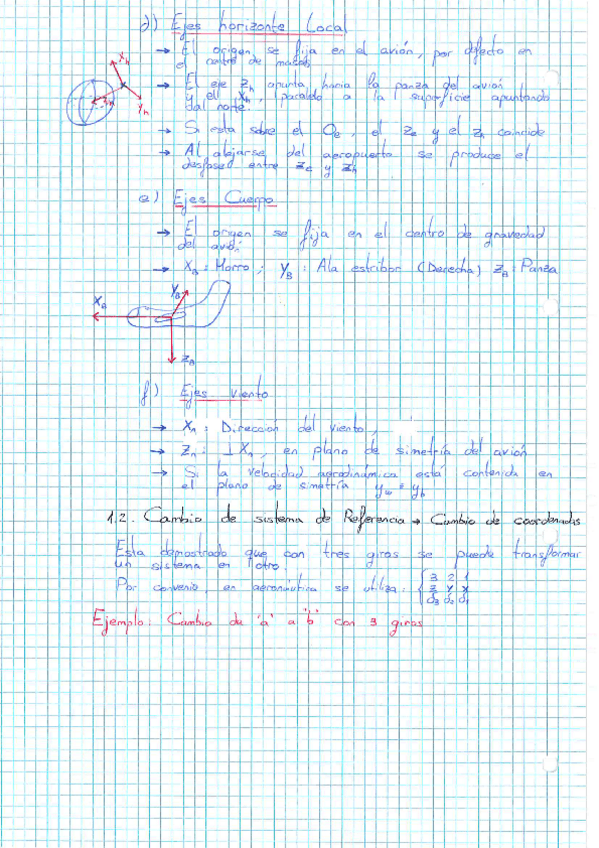 d) Ejes horizonte Local
→ El origen se fija en el avión, por defecto en
el centro de masas
→ El eje Zh apunta hacia la panza del avión
y el Xh, paralelo a la superficie apuntando
al norte.
→ Si esta sobre el Oe, el Ze y el Zh coincide
→ Al alejarse del aeropuerto se produce el
desfase entre Ze y Zh
Xh
Zh
Yh
e) Ejes Cuerpo
→ El origen se fija en el centro de gravedad
del avión.
→ XB: Morro; YB: Ala estribor (Derecha) ZB: Panza
XB
YB
ZB
f) Ejes viento
→ X: Dirección del viento,
→ Z: ⊥X, en plano de simetría del avión
→ Si la velocidad aerodinámica está contenida en
el plano de simetría yw = yb
1.2. Cambio de sistema de Referencia → Cambio de coordenadas
Esta demostrado que con tres giros se puede transformar
un sistema en otro.
Por convenio, en aeronáutica se utiliza: { 3 2 1
z y x
δ3 δ2 δ1
Ejemplo: Cambio de 'a' a 'b' con 3 giros